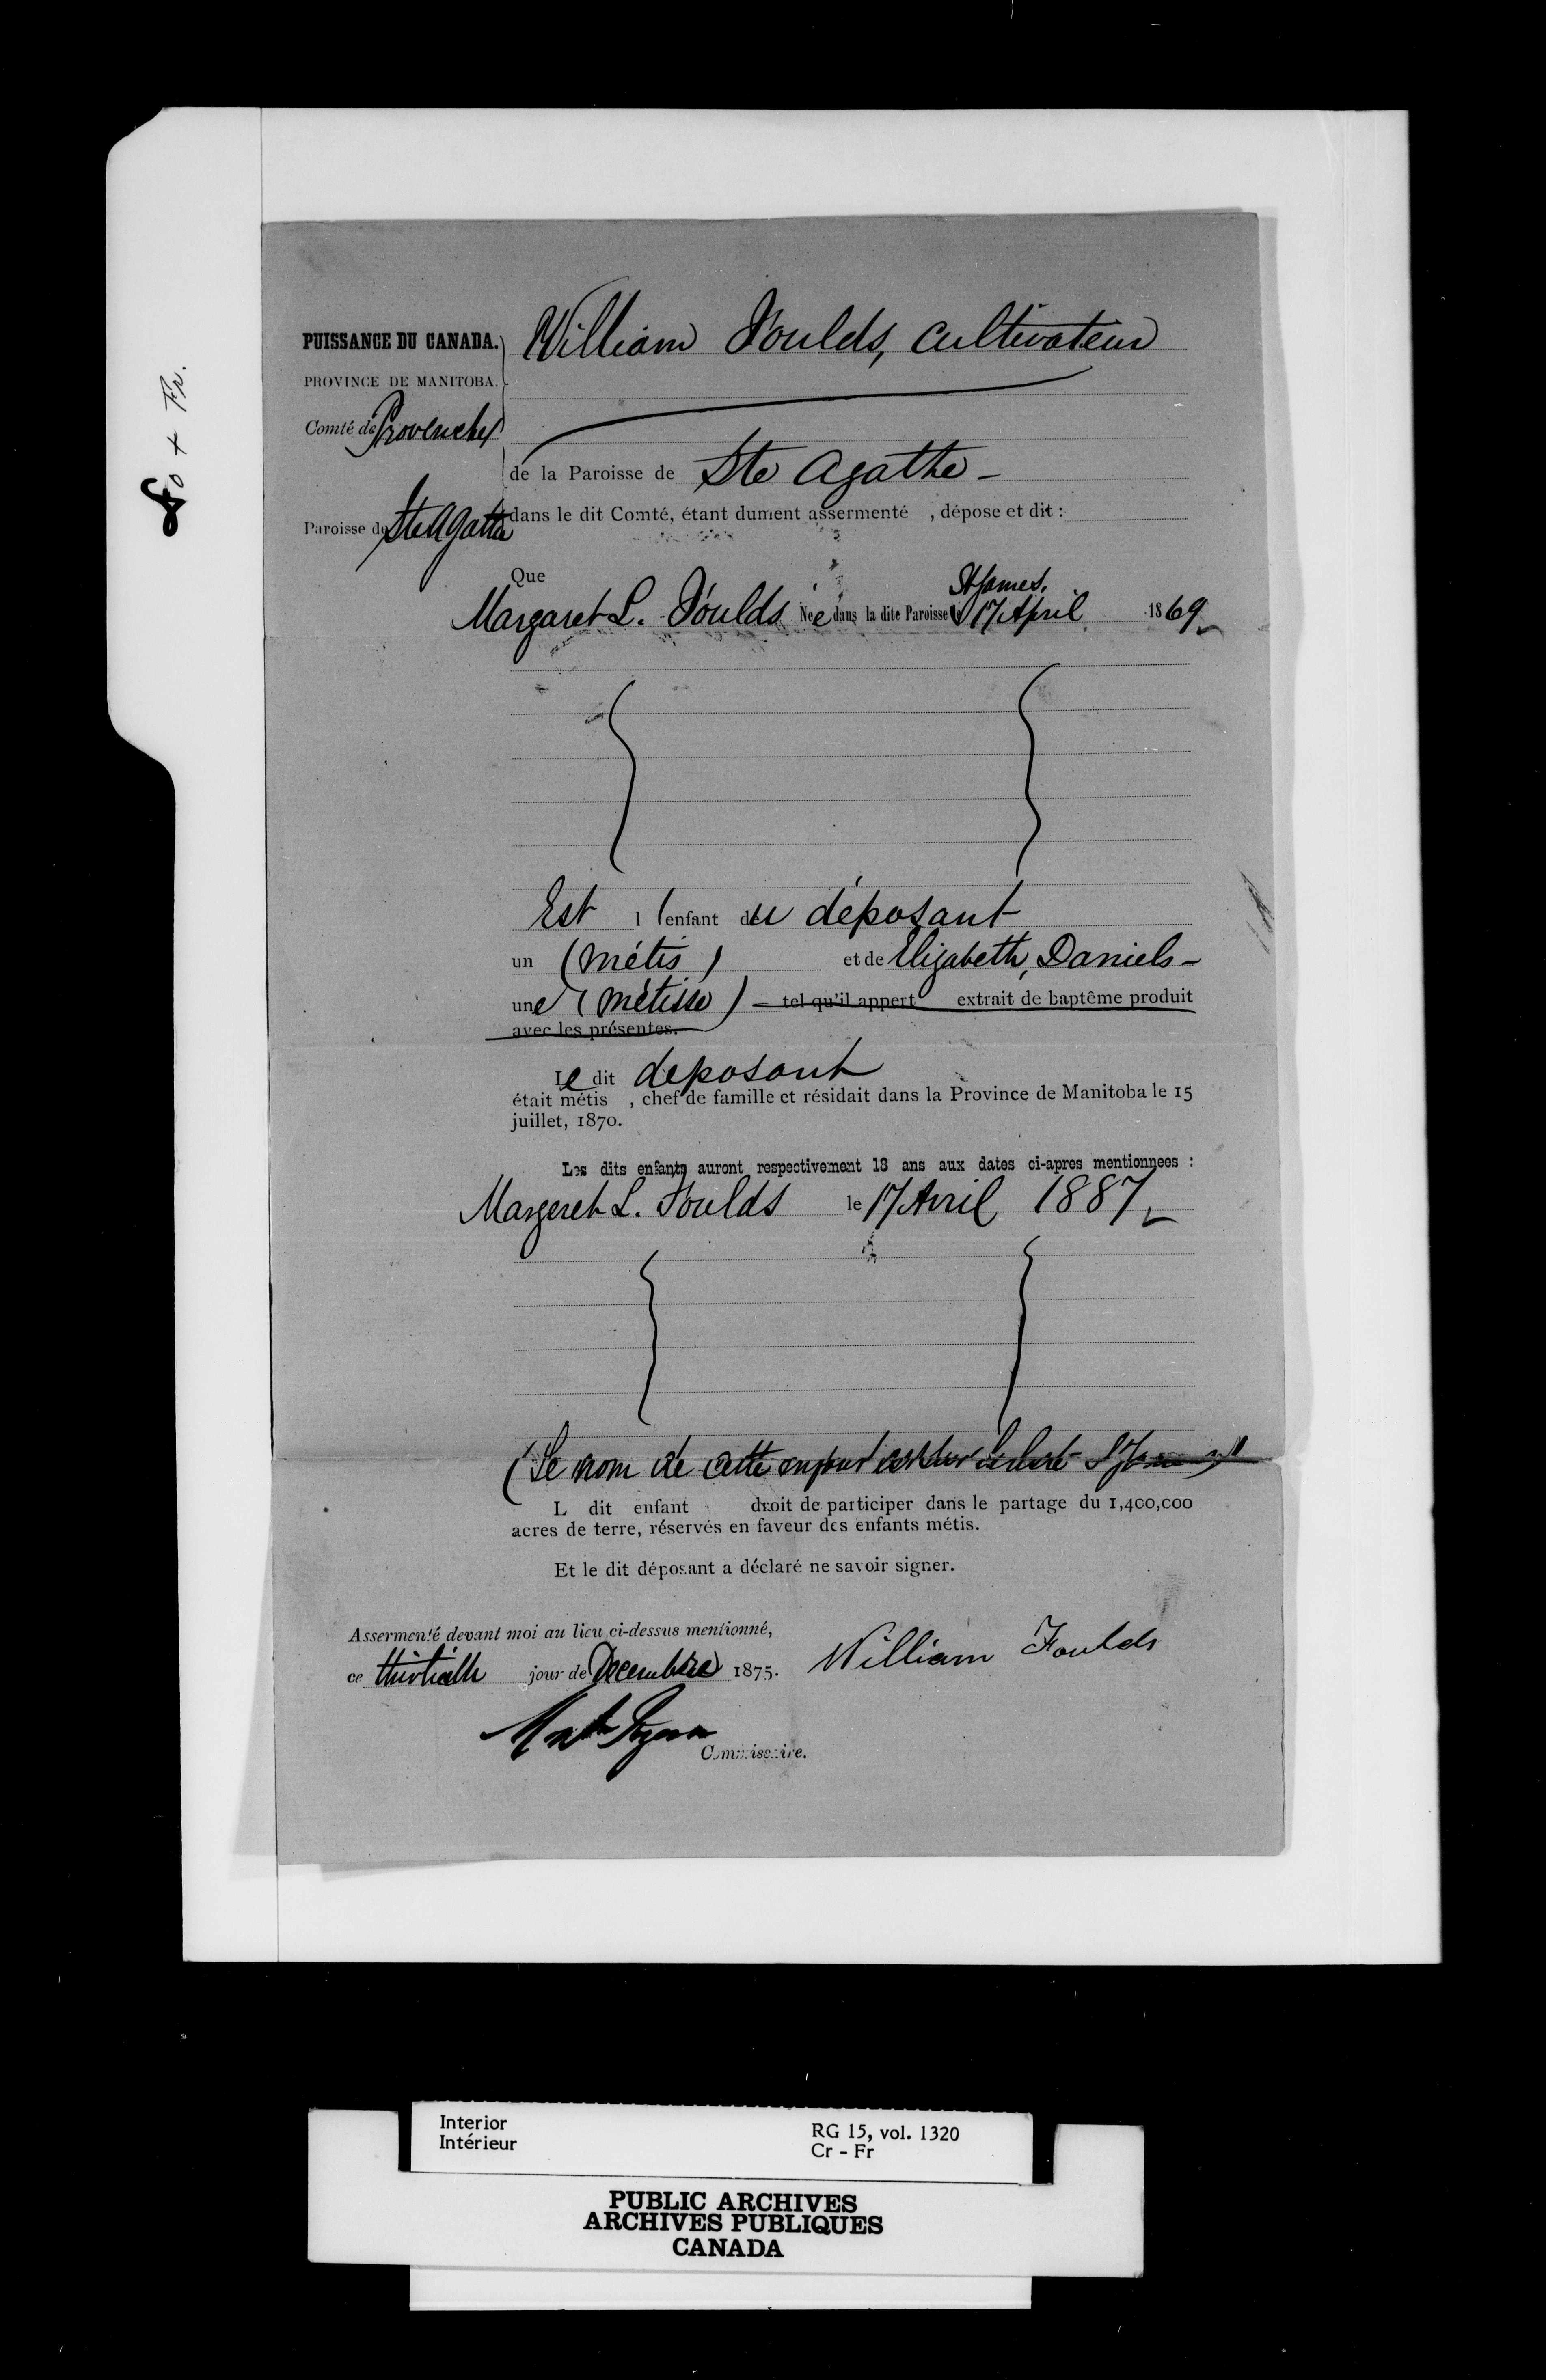 PUISSANCE DU CANADA.
William Foulds, Cultivateur
PROVINCE DE MANITOBA.
Comté de Provencher
de la Paroisse de Ste Agathe -
Paroisse de Ste Agathe
dans le dit Comté, étant dument assermenté , dépose et dit :
Que
St James.
Margaret L. Foulds Née dans la dite Paroisse le 17 April 1869
Est l enfant du déposant
un (Métis) et de Elizabeth Daniels -
une (Métisse) - tel qu'il appert extrait de baptême produit
avec les présentes.
Le dit deposant
était métis , chef de famille et résidait dans la Province de Manitoba le 15
juillet, 1870.
Les dits enfants auront respectivement 18 ans aux dates ci-apres mentionnees :
Margeret L. Foulds le 17 Avril 1887
(Le nom de cette enfant est sur
L dit enfant droit de participer dans le partage du 1,400,000
acres de terre, réservés en faveur des enfants métis.
Et le dit déposant a déclaré ne savoir signer.
Assermenté devant moi au lieu ci-dessus mentionné,
ce thirtieth jour de Decembre 1875.
William Foulds
Commissaire.
Interior
Intérieur
RG 15, vol. 1320
Cr - Fr
PUBLIC ARCHIVES
ARCHIVES PUBLIQUES
CANADA